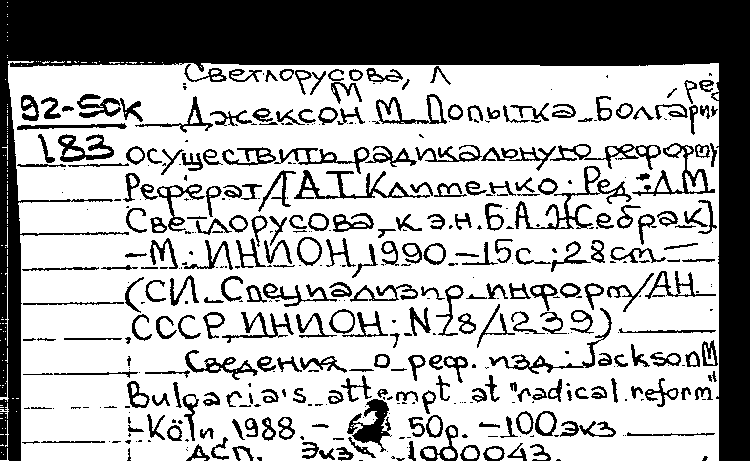 Светлорусова, Л
М ред
92-SOK Джексон М Попытка Болгарии
183 осуществить радикальную реформу
Реферат/[А.Т. Клименко; Ред.: Л.М.
Светлорусова, к.э.н. Б.А. Жебрак]
-М.: ИНИОН, 1990.-15с.; 28cm -
(СИ. Специализир. информ/АН
СССР, ИНИОН; N78/1239)
Сведения о реф. изд.: Jackson M
Bulgaria's attempt at "radical reform".
-Köln, 1988. - 50p. -100экз
ДСП. Экз. 1000043.